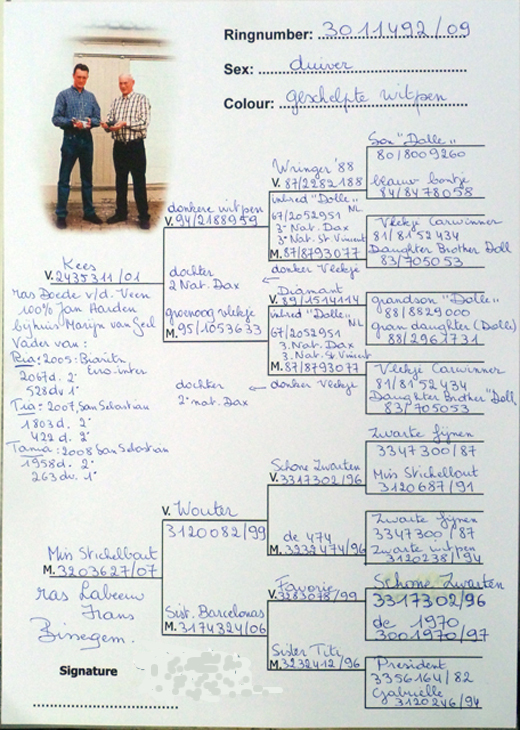 Ringnumber: 3011492/09
Sex: duiver
Colour: geschelpte witpen
Kees
V. 2435311/01
ras Doede v/d. Veen
100% Jan Harden
bij huis Marijn van Geel
Vader van:
Ria: 2005: Biaritz
2067 d. 2e Euro-inter
528 dv 1e
Tia: 2007, San Sebastian
1803 d. 2e
422 d. 2e
Tamia: 2008 San Sebastian
1958 d. 2e
263 dv. 1e
donkere witpen
V. 94/2188959
dochter
2 Nat. Dax
groenoog vlekje
M. 95/1053633
dochter
2e nat. Dax
Wringer '88
V. 87/2282188
inbred "Dolle"
67/2052951 NL
3e Nat. Dax
3e Nat. St Vincent
M. 87/8793077
donker Vlekje
Diamant
V. 89/1514114
inbred "Dolle"
67/2052951 NL
3. Nat. Dax
3. Nat. St Vincent
M. 87/8793077
donker Vlekje
Son "Dolle"
80/8009260
blauw bontje
84/8478058
Vlekje Carwinner
81/8152434
Daughter Brother Doll
83/705053
grandson "Dolle"
88/8829000
gran daughter (Dolle)
88/2961731
Vlekje Carwinner
81/8152434
Daughter Brother "Doll
83/705053
Miss Stichelbaut
M. 3203627/07
ras Labeeuw
Frans
Bissegem.
V. Wouter
3120082/99
Sist. Barcelonas
M. 3174324/06
Schone Zwarten
V. 3317302/96
de 474
M. 3232474/96
Favorie
V. 3283078/99
Sister Titi
M. 3232412/96
Zwarte Fijnen
3347300/87
Miss Stichelbaut
3120687/91
Zwarte Fijnen
3347300/87
Zwarte witpen
3120238/94
Schone Zwarten
3317302/96
de 1970
3001970/97
President
3356164/82
Gabrielle
3120246/94
Signature